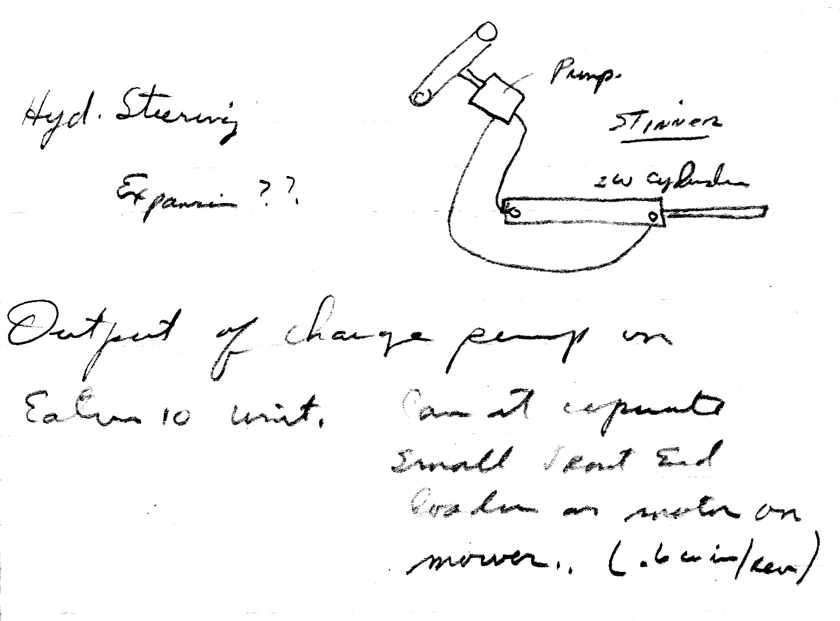 Pump.
Hyd. Steering
STINNER
2W Cylinder
Expansion ??
Output of charge pump on
Eaton 10 unit. Can it operate
small Front End
loader or motor on
mower.. (.6 cu in/rev)